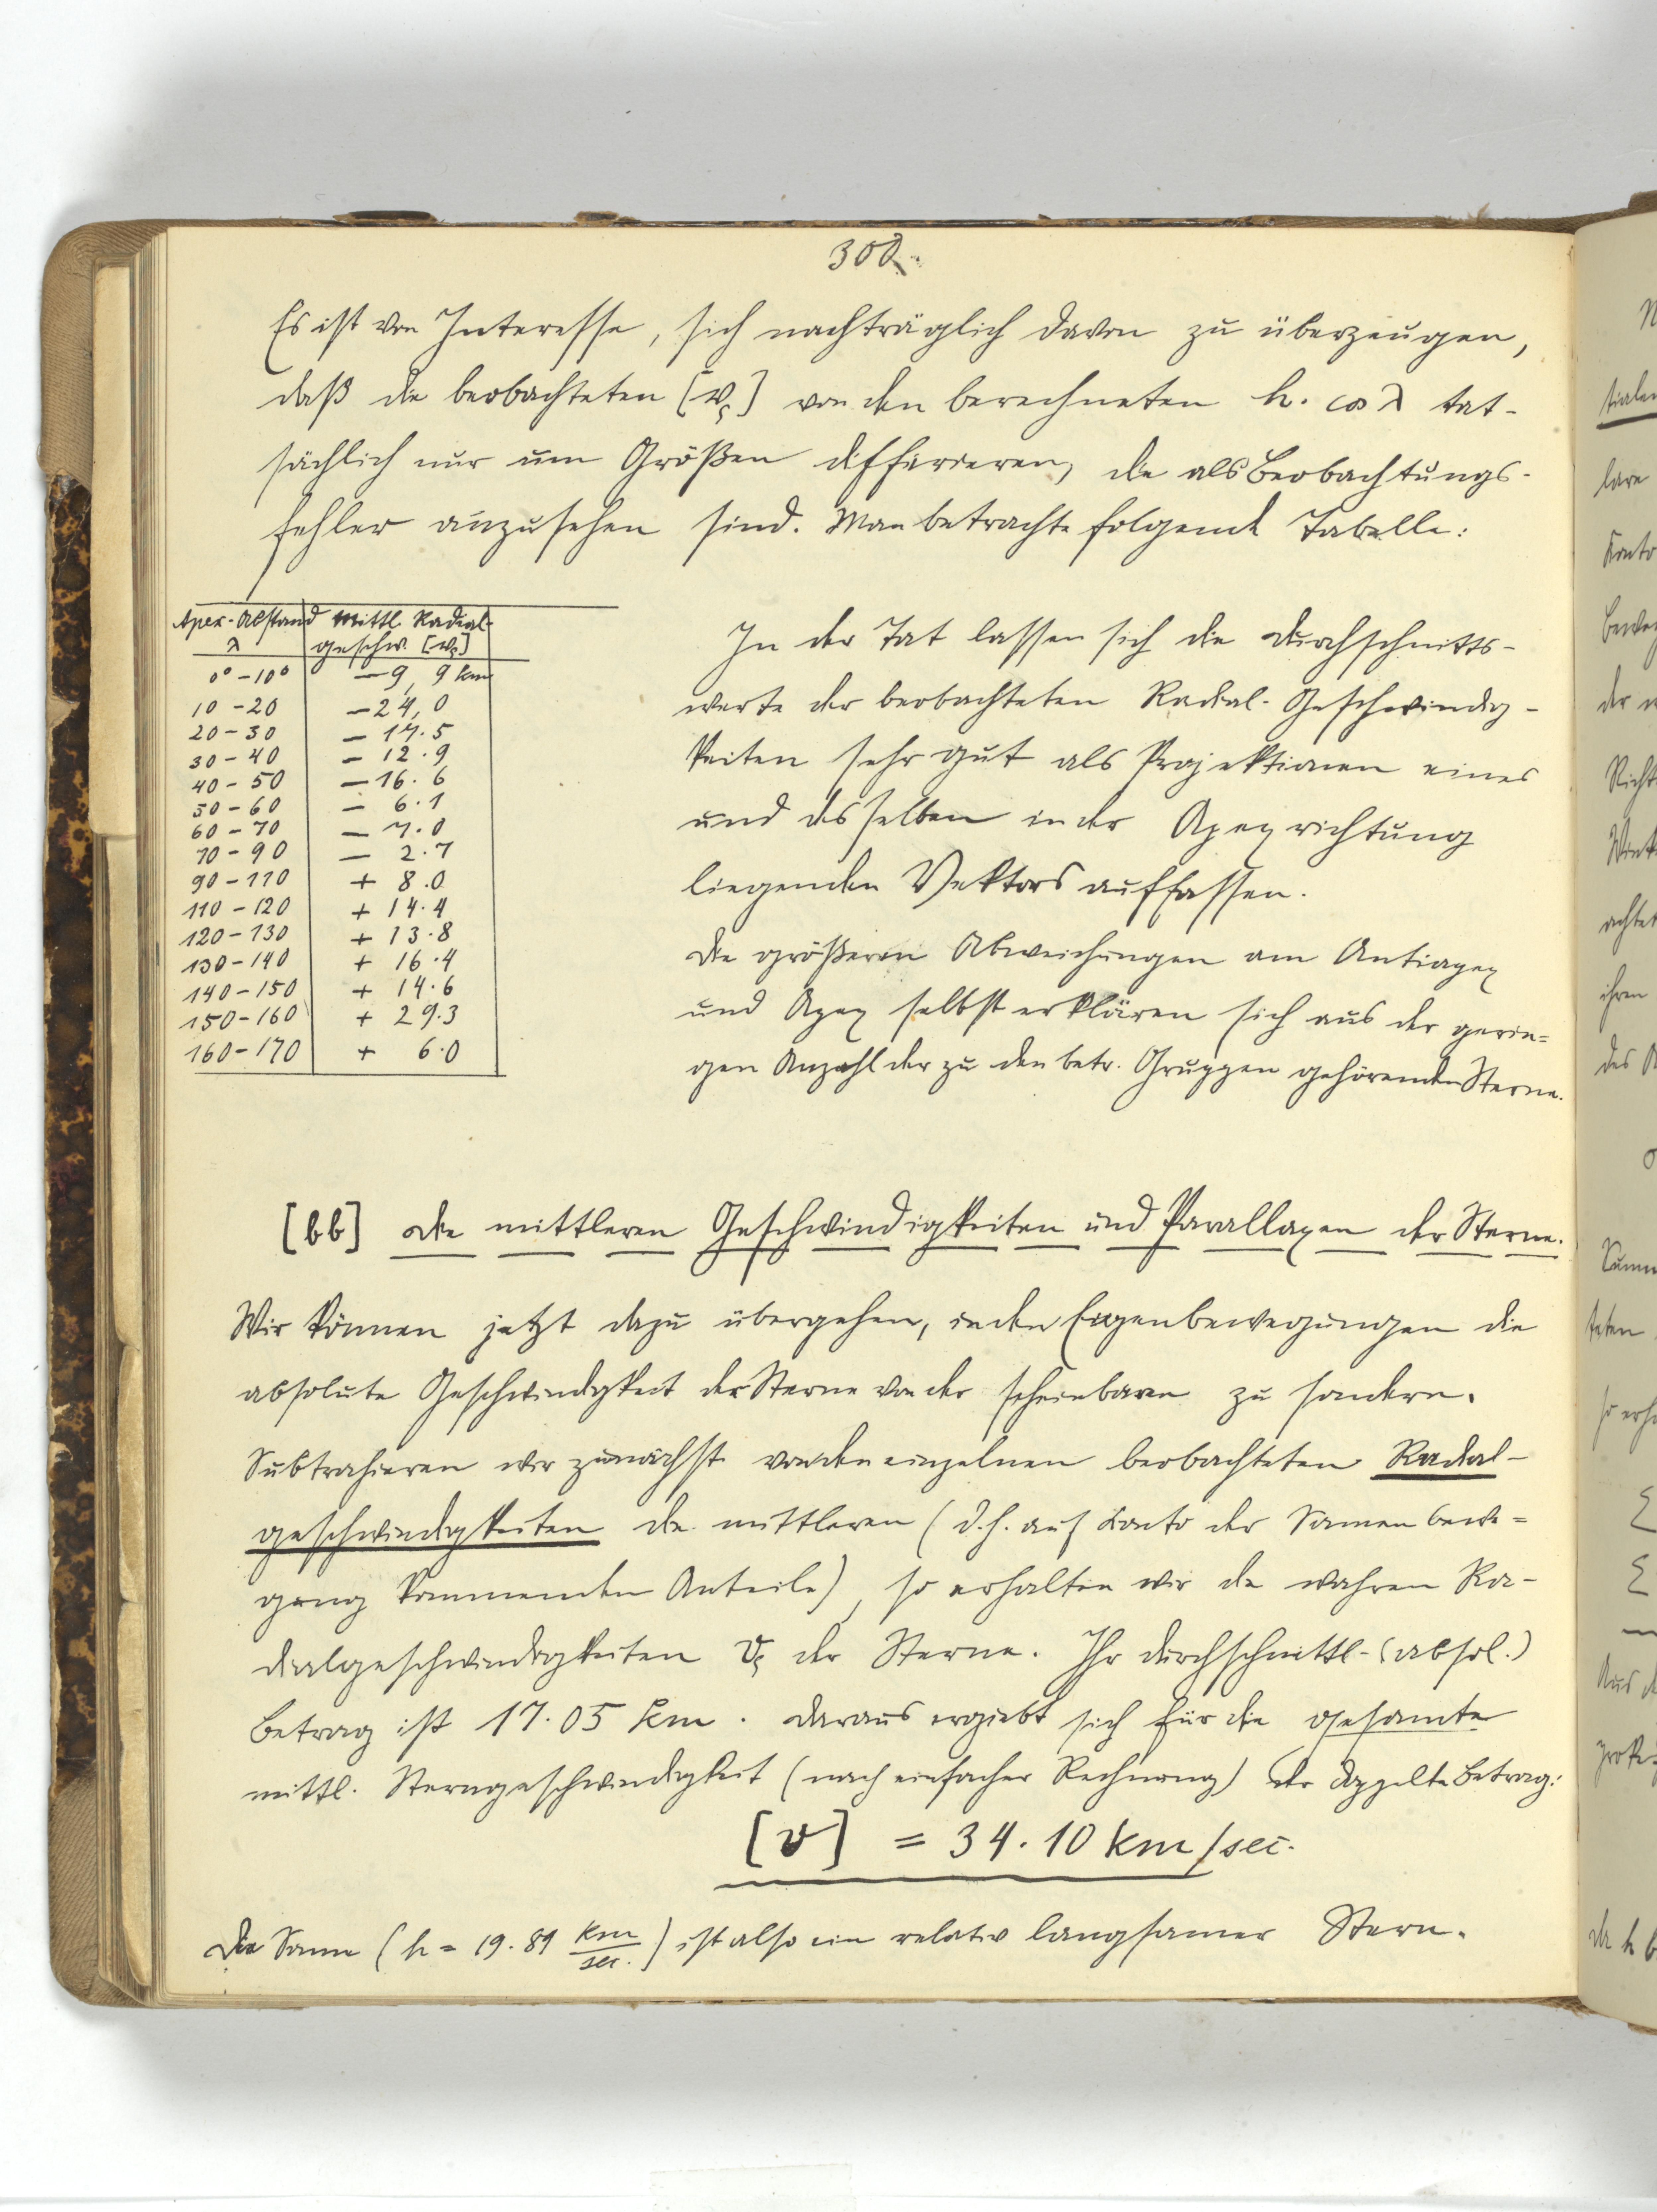 300.
Es ist von Interesse, sich nachträglich davon zu überzeugen,
daß die beobachteten [v_ς] von den berechneten h. cos λ tat-
sächlich nur um Größen differieren, die als Beobachtungs-
fehler anzusehen sind. Man betrachte folgende Tabelle:
Apex-Abstand λ | Mittl. Radial-geschw. [v_ς]
0° - 10° | - 9,9 km
10 - 20 | - 24,0
20 - 30 | - 17.5
30 - 40 | - 12.9
40 - 50 | - 16.6
50 - 60 | - 6.1
60 - 70 | - 7.0
70 - 90 | - 2.7
90 - 110 | + 8.0
110 - 120 | + 14.4
120 - 130 | + 13.8
130 - 140 | + 16.4
140 - 150 | + 14.6
150 - 160 | + 29.3
160 - 170 | + 6.0
In der Tat lassen sich die Durchschnitts-
werte der beobachteten Radial-Geschwindig-
keiten sehr gut als Projektionen eines
und desselben in der Apexrichtung
liegenden Vektors auffassen.
Die größeren Abweichungen am Antiapex
und Apex selbst erklären sich aus der gerin=
gen Anzahl der zu den betr. Gruppen gehörenden Sterne.
[bb] Die mittleren Geschwindigkeiten und Parallaxen der Sterne.
Wir können jetzt dazu übergehen, in den Eigenbewegungen die
absolute Geschwindigkeit der Sterne von der scheinbaren zu sondern.
Subtrahieren wir zunächst von den einzelnen beobachteten Radial-
geschwindigkeiten die mittleren (d.h. auf Konto der Sonnenbewe=
gung kommenden Anteile), so erhalten wir die wahren Ra-
dialgeschwindigkeiten v_ς der Sterne. Ihr durchschnittl. (absol.)
Betrag ist 17.05 km. Daraus ergiebt sich für die gesamte
mittl. Sterngeschwindigkeit (nach einfacher Rechnung) der doppelte Betrag:
[v] = 34.10 km/sec.
Die Sonne (h = 19.89 km/sec.) ist also ein relativ langsamer Stern.